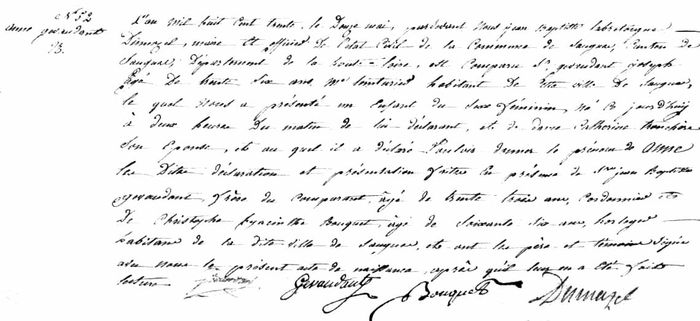 N° 52
anne gevaudant
B.
L'an mil huit cent trente, le Douze mai, pardevant Nous jean Baptiste labretoigne
Dumazel, maire et officier de l'état Civil de la Commune de Saugues, Canton de
Saugues, Département de la haute-loire, est Comparu Sr gevaudant joseph
âgé De trente six ans, Md teinturier habitant de cette ville de Saugues,
lequel Nous a présenté un enfant du sexe féminin, né ce jourd'huy
à deux heures du matin de lui déclarant, et de dame Catherine
Son épouse, et au quel il a déclaré Vouloir donner le prénom de anne
les Dites déclaration et présentation faites en présence de Srs jean Baptiste
gevaudant frère du Comparant, âgé de trente trois ans, Cordonnier et
De Christophe hyacinthe Bouquet, âgé de Soixante Six ans, horloger
habitans de la dite ville de Saugues, et ont les père et témoins signé
avec nous le présent acte de naissance, après qu'il leur en a été faite
lecture Gevaudant Bouquet Dumazel